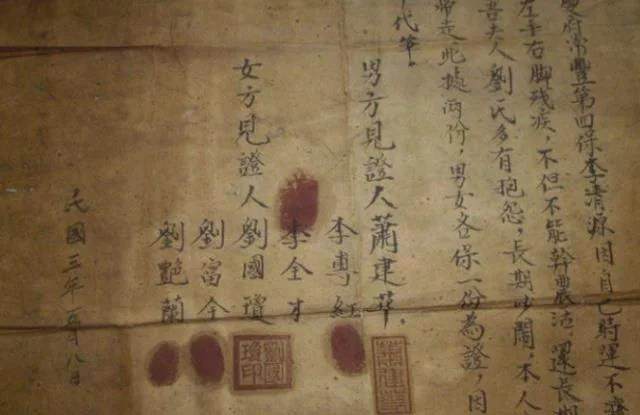 府常豐第四保李清源因自己時運不濟
左手右脚残疾、不但不能幹農活、還長
吾夫人劉氏多有抱怨，長期吵鬧，本人
走此據兩份，男女各保一份為證，因
代筆。
男方見證人蕭建華
李專紅
李全才
女方見證人劉國瓊
劉國瓊印
劉富全
劉艷蘭
民國三年 月八日